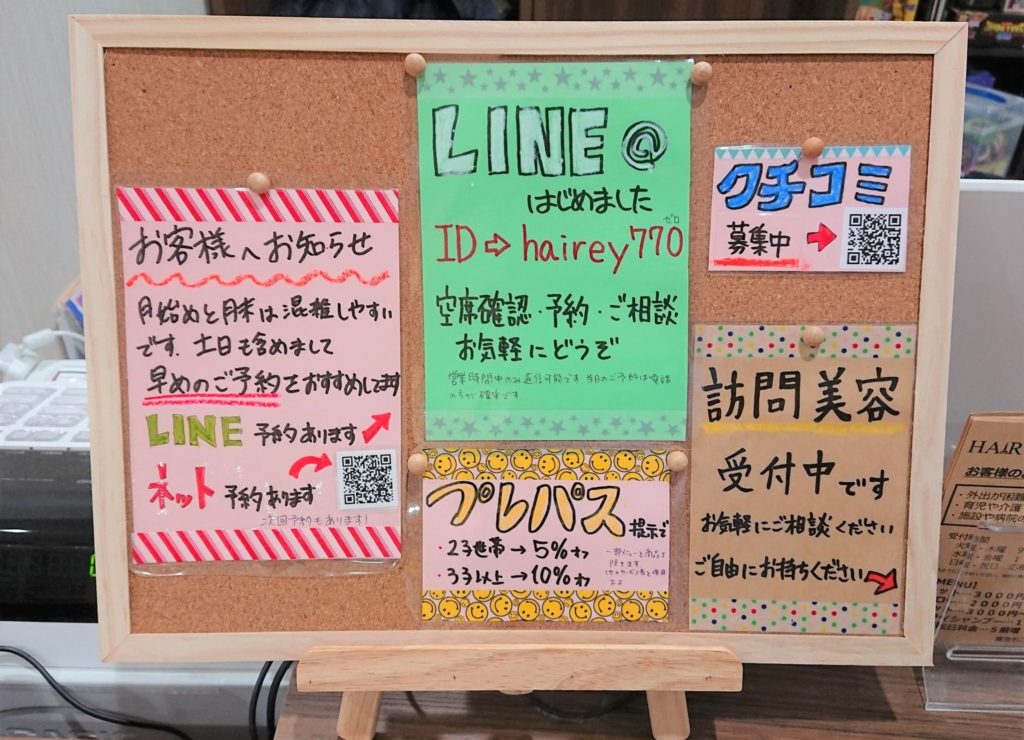 お客様へお知らせ
月始めと月末は混雑しやすい
です。土日も含めまして
早めのご予約をおすすめしてます
LINE 予約あります
ネット 予約あります
次回予約もあります!
LINE@
はじめました
ゼロ
ID⇨hairey770
空席確認・予約・ご相談
お気軽にどうぞ
営業時間中のみ返信可能です 当日のご予約は電話
の方が確実です
プレパス 提示で
・2子世帯→5%オフ
・3子以上→10%オフ
一部メニューと商品は
除きます
クチコミ
募集中
訪問美容
受付中です
お気軽にご相談ください
ご自由にお持ちください
HAIR
お客様の
・外出が困難
・育児や介護
・施設や病院の
受付時間
火曜・木曜
水曜・金曜
日曜・祝日
MENU]
3000円
2000円
3000円
シャンプー